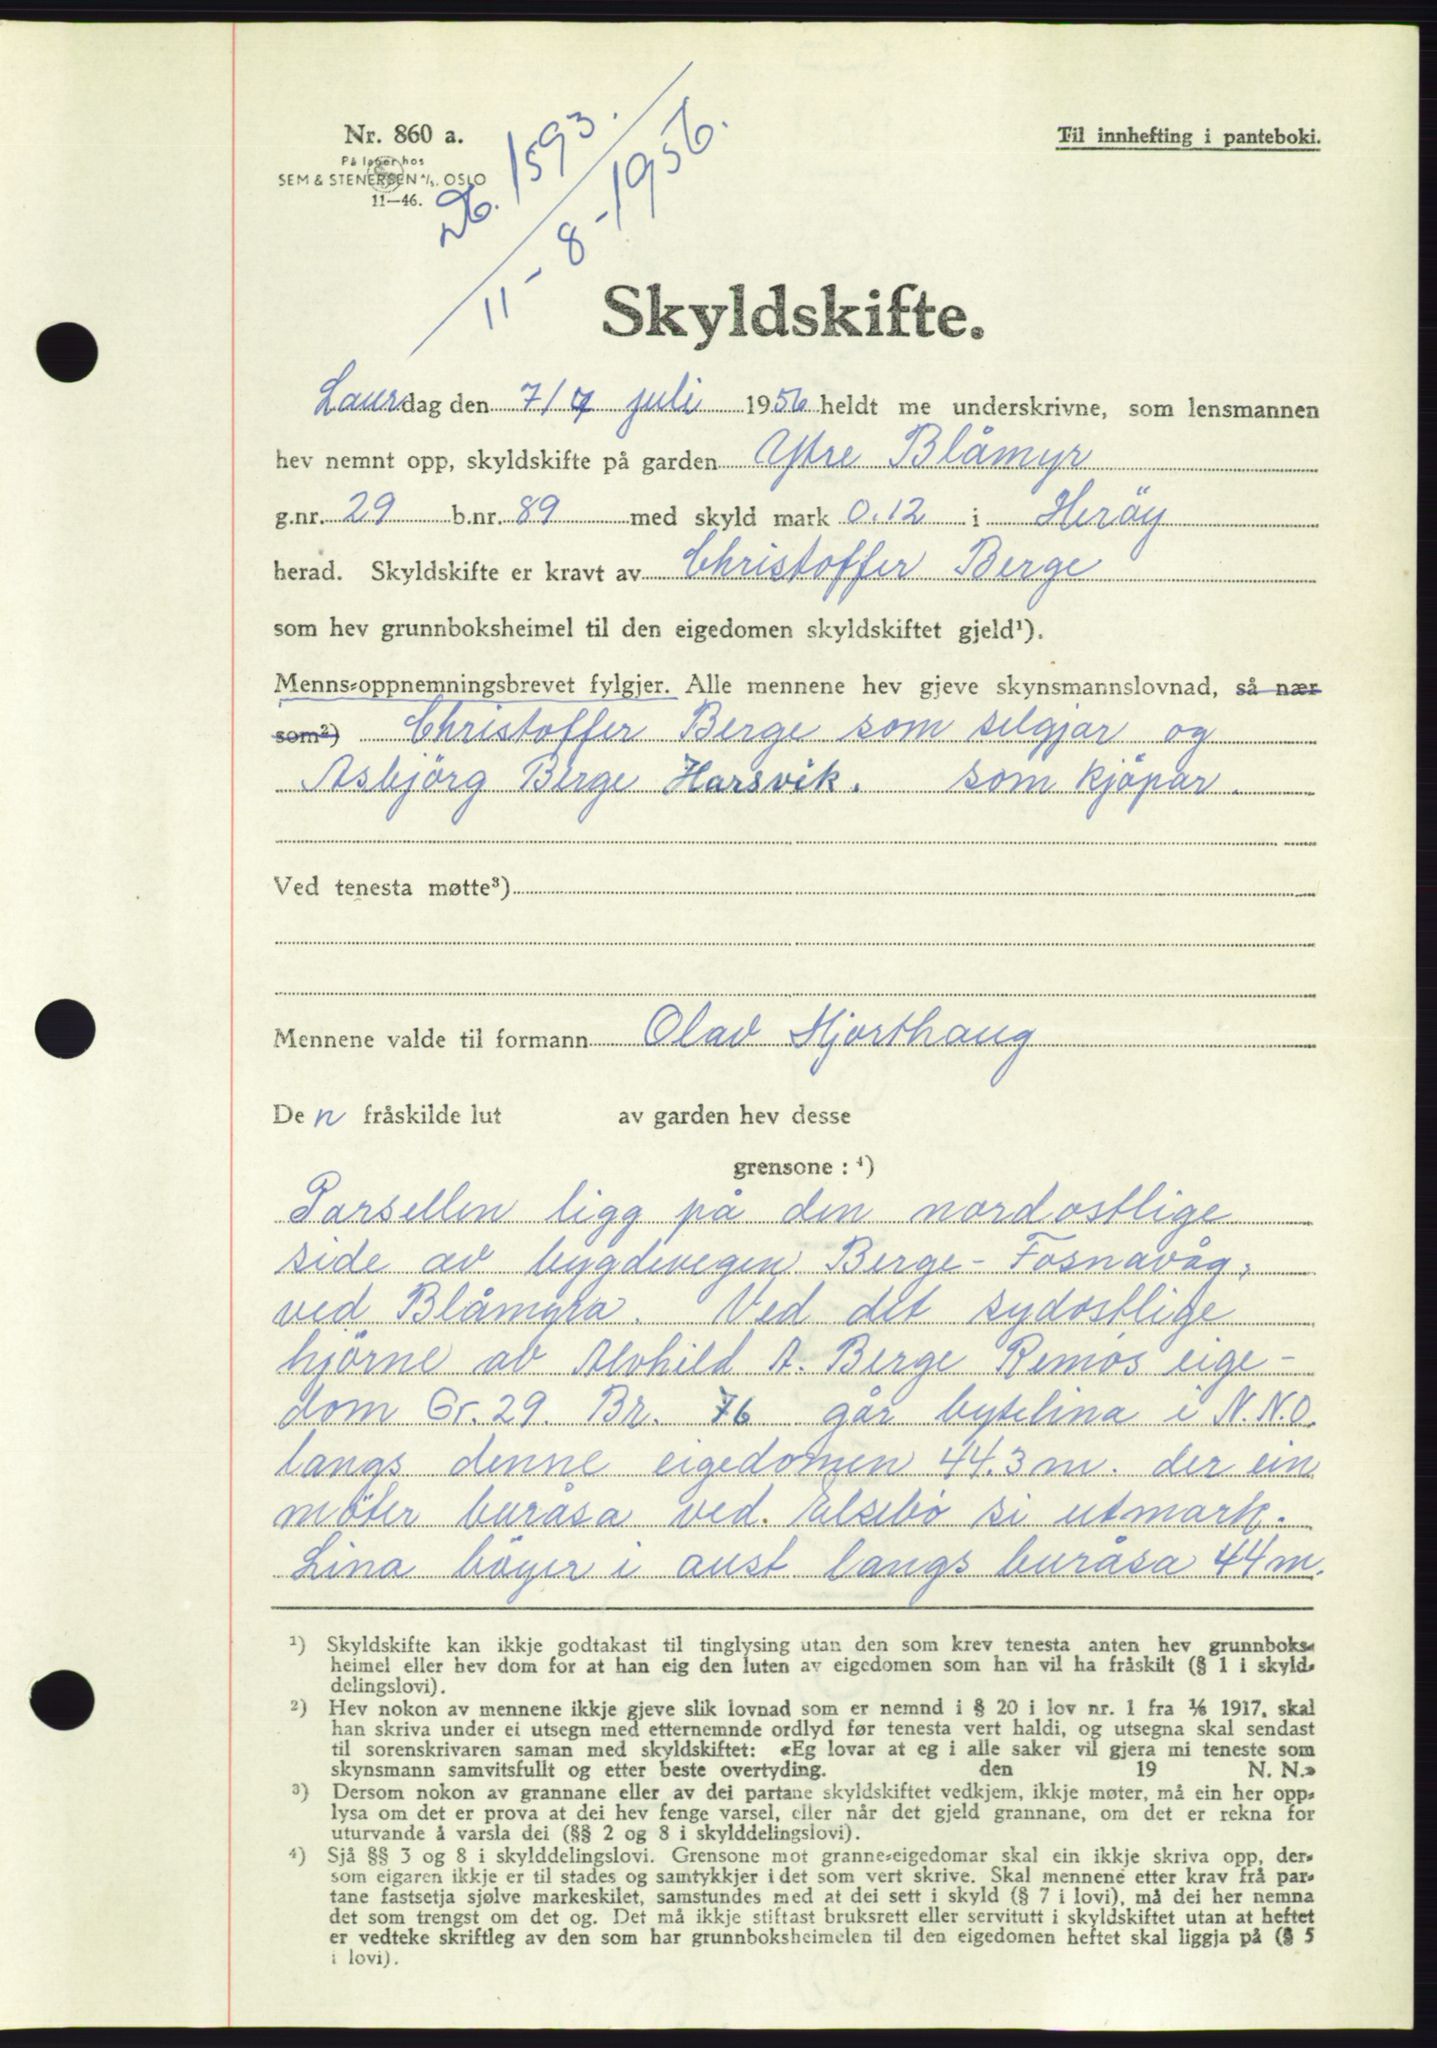 Nr. 860 a.
På lager hos
SEM & STENERSEN A/S. OSLO
11—46.
Db. 1593.
11 - 8 - 1956.
Til innhefting i panteboki.
Skyldskifte.
Laurdag den 7/7 juli 1956 heldt me underskrivne, som lensmannen
hev nemnt opp, skyldskifte på garden Ytre Blåmyr
g.nr. 29 b.nr. 89 med skyld mark 0.12 i Herøy
herad. Skyldskifte er kravt av Christoffer Berge
som hev grunnboksheimel til den eigedomen skyldskiftet gjeld¹).
Menns-oppnemningsbrevet fylgjer. Alle mennene hev gjeve skynsmannslovnad, så nær
som²) Christoffer Berge som selgjar og
Asbjörg Berge Harsvik. som kjöpar.
Ved tenesta møtte³)
Mennene valde til formann Olav Hjorthaug
Den fråskilde lut av garden hev desse
grensone : ⁴)
Parsellen ligg på den nordostlige
side av bygdevegen Berge - Fosnavåg,
ved Blåmyra. Ved det sydostlige
hjörne av Alvhild A. Berge Remøs eige-
dom Gr. 29. Br. 76 går bytelina i N.N.O.
langs denne eigedomen 44.3 m. der ein
möter buråsa ved. Elsebø si utmark.
Lina böyer i aust langs buråsa 44 m.
¹) Skyldskifte kan ikkje godtakast til tinglysing utan den som krev tenesta anten hev grunnboks-
heimel eller hev dom for at han eig den luten av eigedomen som han vil ha fråskilt (§ 1 i skyld-
delingslovi).
²) Hev nokon av mennene ikkje gjeve slik lovnad som er nemnd i § 20 i lov nr. 1 fra 1/6 1917, skal
han skriva under ei utsegn med etternemnde ordlyd før tenesta vert haldi, og utsegna skal sendast
til sorenskrivaren saman med skyldskiftet: «Eg lovar at eg i alle saker vil gjera mi teneste som
skynsmann samvitsfullt og etter beste overtyding. den 19 N. N.»
³) Dersom nokon av grannane eller av dei partane skyldskiftet vedkjem, ikkje møter, må ein her opp-
lysa om det er prova at dei hev fenge varsel, eller når det gjeld grannane, om det er rekna for
uturvande å varsla dei (§§ 2 og 8 i skylddelingslovi).
⁴) Sjå §§ 3 og 8 i skylddelingslovi. Grensone mot granne-eigedomar skal ein ikkje skriva opp, der-
som eigaren ikkje er til stades og samtykkjer i det som vert skrive. Skal mennene etter krav frå par-
tane fastsetja sjølve markeskilet, samstundes med at dei sett i skyld (§ 7 i lovi), må dei her nemna
det som trengst om det og. Det må ikkje stiftast bruksrett eller servitutt i skyldskiftet utan at heftet
er vedteke skriftleg av den som har grunnboksheimelen til den eigedomen heftet skal liggja på (§ 5
i lovi).